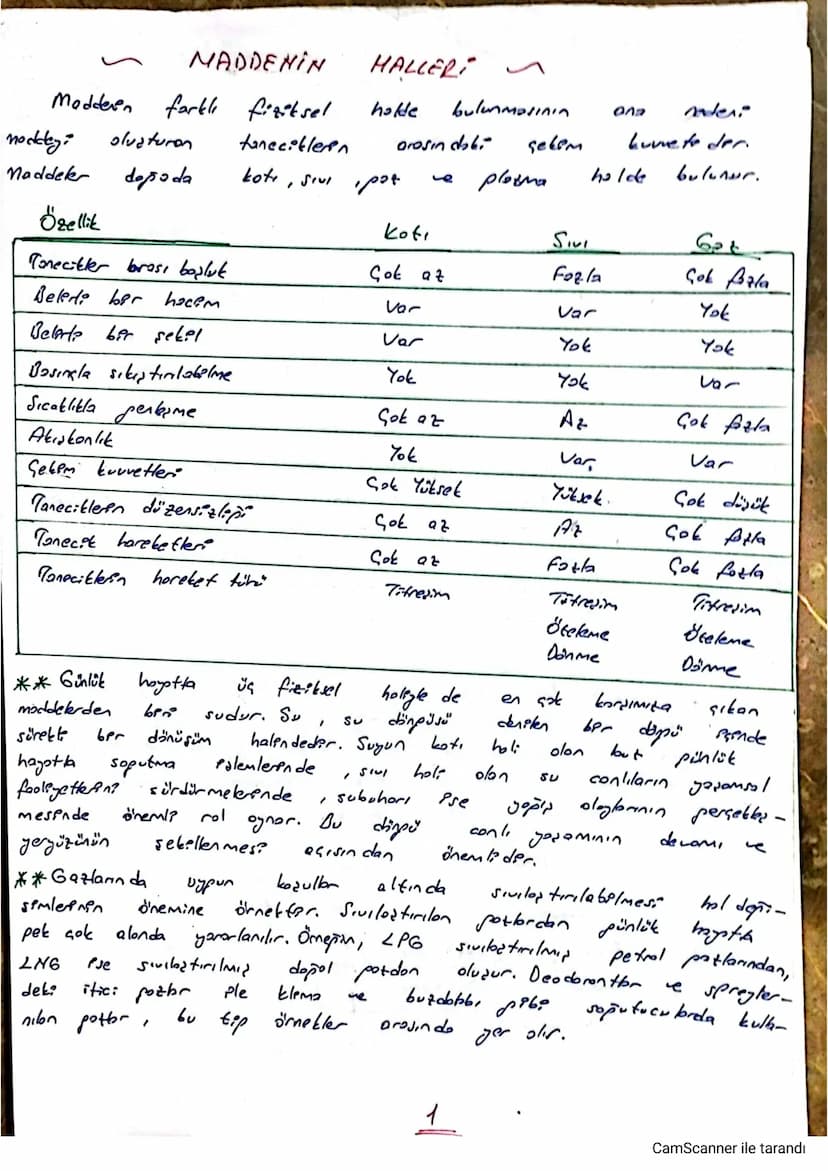 ~ MADDENİN HALLERİ ~
Maddenin farklı fiziksel halde bulunmasının ana nedeni
maddeyi oluşturan taneciklerin arasındaki çekim kuvvetidir.
Maddeler doğada katı, sıvı, gaz ve plazma halde bulunur.
Özellik Katı Sıvı Gaz
Tanecikler arası boşluk Çok az Fazla Çok fazla
Belirli bir hacim Var Var Yok
Belirli bir şekil Var Yok Yok
Basınçla sıkıştırılabilme Yok Yok Var
Sıcaklıkla genleşme Çok az Az Çok fazla
Akışkanlık Yok Var Var
Çekim kuvvetleri Çok Yüksek Yüksek Çok düşük
Taneciklerin düzensizliği Çok az Az Çok fazla
Tanecik hareketleri Çok az Fazla Çok fazla
Taneciklerin hareket türü Titreşim Titreşim Titreşim
Öteleme Öteleme
Dönme Dönme
** Günlük hayatta üç fiziksel haliyle de en çok karşımıza çıkan
maddelerden biri sudur. Su, su döngüsü denilen bir döngü içinde
sürekli bir dönüşüm halindedir. Suyun katı hali olan buz günlük
hayatta soğutma işlemlerinde, sıvı hali olan su canlıların yaşamsal
faaliyetlerini sürdürmelerinde, subuharı ise yağış olaylarının gerçekleş-
mesinde önemli rol oynar. Bu döngü canlı yaşamının devamı ve
yeryüzünün şekillenmesi açısından önemlidir.
** Gazlarında uygun koşullar altında sıvılaştırılabilmesi hal deği-
şimlerinin önemine örnektir. Sıvılaştırılan gazlardan günlük hayatta
pek çok alanda yararlanılır. Örneğin, LPG sıvılaştırılmış petrol gazlarından,
LNG ise sıvılaştırılmış doğal gazdan oluşur. Deodorantlar ve spreyler-
deki itici gazlar ile klima ve buzdolabı gibi soğutucularda kulla-
nılan gazlar, bu tip örnekler arasında yer alır.
1
CamScanner ile tarandı